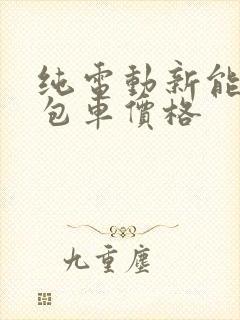 纯電動新能
包車價格
九重塵